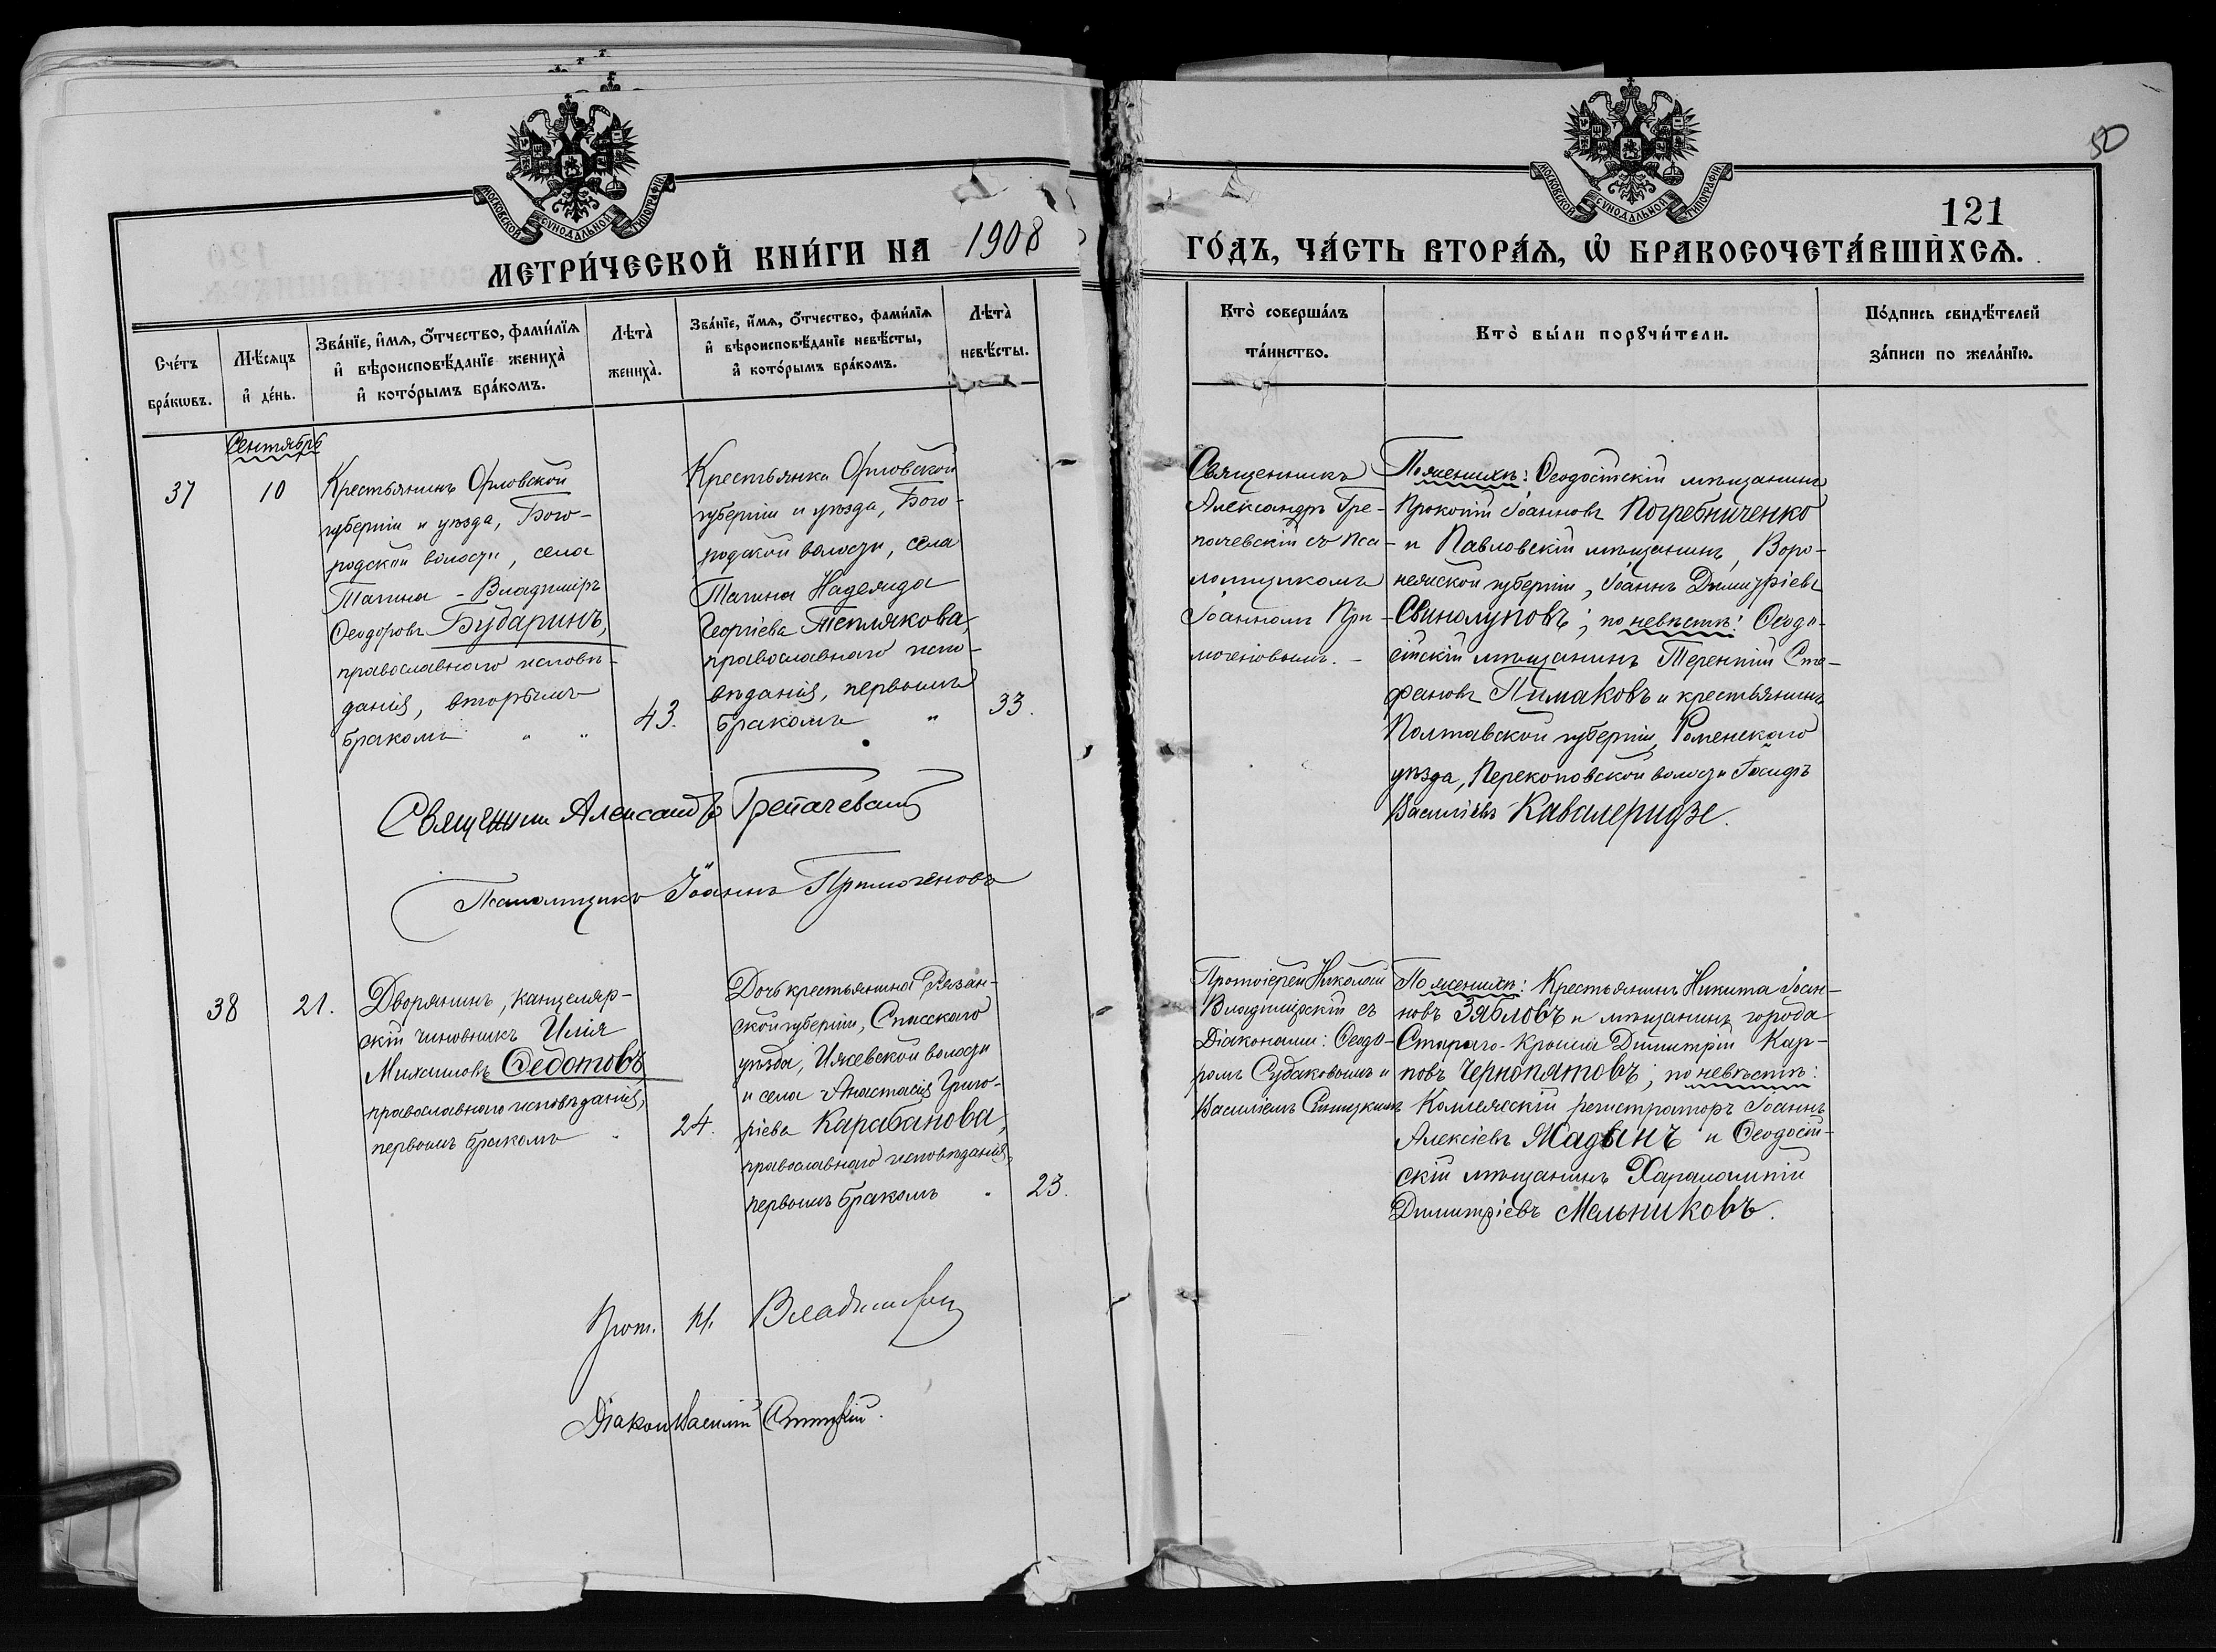 50
121
МОСКОВСКОЙ СѴНОДАЛЬНОЙ ТИПОГРАФІИ.
МОСКОВСКОЙ СѴНОДАЛЬНОЙ ТИПОГРАФІИ.
МЕТРИ́ЧЕСКОЙ КНИ́ГИ НА 1908 ГО́ДЪ, ЧА́СТЬ ВТОРА́Ѧ, Ѡ҆ БРАКОСОЧЕТА́ВШИХСѦ.
Сче́тъ
бра́кѡвъ.
Мѣ́сѧцъ
и҆ де́нь.
Зва́нїе, и҆́мѧ, ѻ҆́тчество, фами́лїѧ
и҆ вѣроисповѣ́данїе жениха̀
и҆ кото́рымъ бра́комъ.
Лѣта̀
жениха̀.
Зва́нїе, и҆́мѧ, ѻ҆́тчество, фами́лїѧ
и҆ вѣроисповѣ́данїе невѣ́сты,
и҆ кото́рымъ бра́комъ.
Лѣта̀
невѣ́сты.
Кто̀ соверша́лъ
та́инство.
Кто̀ бы́ли порꙋчи́тели.
По́дпись свидѣ́телей
за́писи по жела́нїю.
Сентябрь
37
10
Крестьянинъ Орловской
губерніи и уѣзда, Бого-
родской волости, села
Тагина - Владиміръ
Ѳеодоровъ Бударинъ,
православнаго исповѣ-
данія, вторымъ
бракомъ " "
43.
Крестьянка Орловской
губерніи и уѣзда, Бого-
родской волости, села
Тагина Надежда
Георгіева Теплякова,
православнаго испо-
вѣданія, первымъ
бракомъ "
33.
Священникъ
Александръ Гре-
пачевскій съ пса-
ломщикомъ
Іоанномъ При-
моченовымъ. -
По женихѣ: Ѳеодосійскій мѣщанинъ
Прокопій Іоанновъ Погребниченко
и Павловскій мѣщанинъ, Воро-
нежской губерніи, Іоаннъ Димитріевъ
Свинолуповъ; по невѣстѣ: Ѳеодо-
сійскій мѣщанинъ Терентій Сте-
фановъ Пимаковъ и крестьянинъ
Полтавской губерніи, Роменскаго
уѣзда, Перекоповской волости Іосифъ
Василіевъ Кавалеридзе.
Священникъ Александръ Грепачевскій
Псаломщикъ Іоаннъ Примоченовъ
38
21.
Дворянинъ, канцеляр-
скій чиновникъ Илія
Михаиловъ Ѳедотовъ,
православнаго исповѣданія,
первымъ бракомъ "
24.
Дочь крестьянина Рязан-
ской губерніи, Спасскаго
уѣзда, Ижевской волости
и села Анастасія Григо-
ріева Карабанова,
православнаго исповѣданія,
первымъ бракомъ "
23.
Протоіерей Николай
Владимірскій съ
Діаконами: Ѳеодо-
ромъ Судаковымъ и
Василіемъ Синицкимъ
По женихѣ: Крестьянинъ Никита Іоан-
новъ Зябловъ и мѣщанинъ города
Стараго-Крыма Димитрій Кар-
повъ Чернопятовъ; по невѣстѣ:
Коллежскій регистраторъ Іоаннъ
Алексіевъ Мадынъ и Ѳеодосій-
скій мѣщанинъ Харалампій
Димитріевъ Мельниковъ.
Прот. Н. Владимірскій
Діаконъ Василій Синицкій.